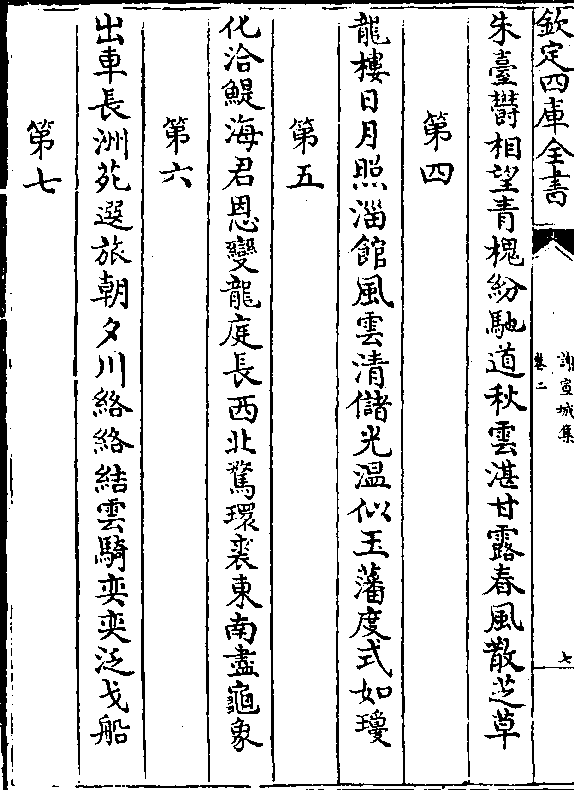 欽定四庫全書
謝宣城集
卷二
七
朱臺鬱相望青槐紛馳道秋雲湛甘露春風散芝草
第四
龍樓日月照淄館風雲清儲光温似玉藩度式如瓊
第五
化洽鯷海君恩變龍庭長西北騖環裘東南盡龜象
第六
出車長洲苑選旅朝夕川絡絡結雲騎奕奕泛戈船
第七